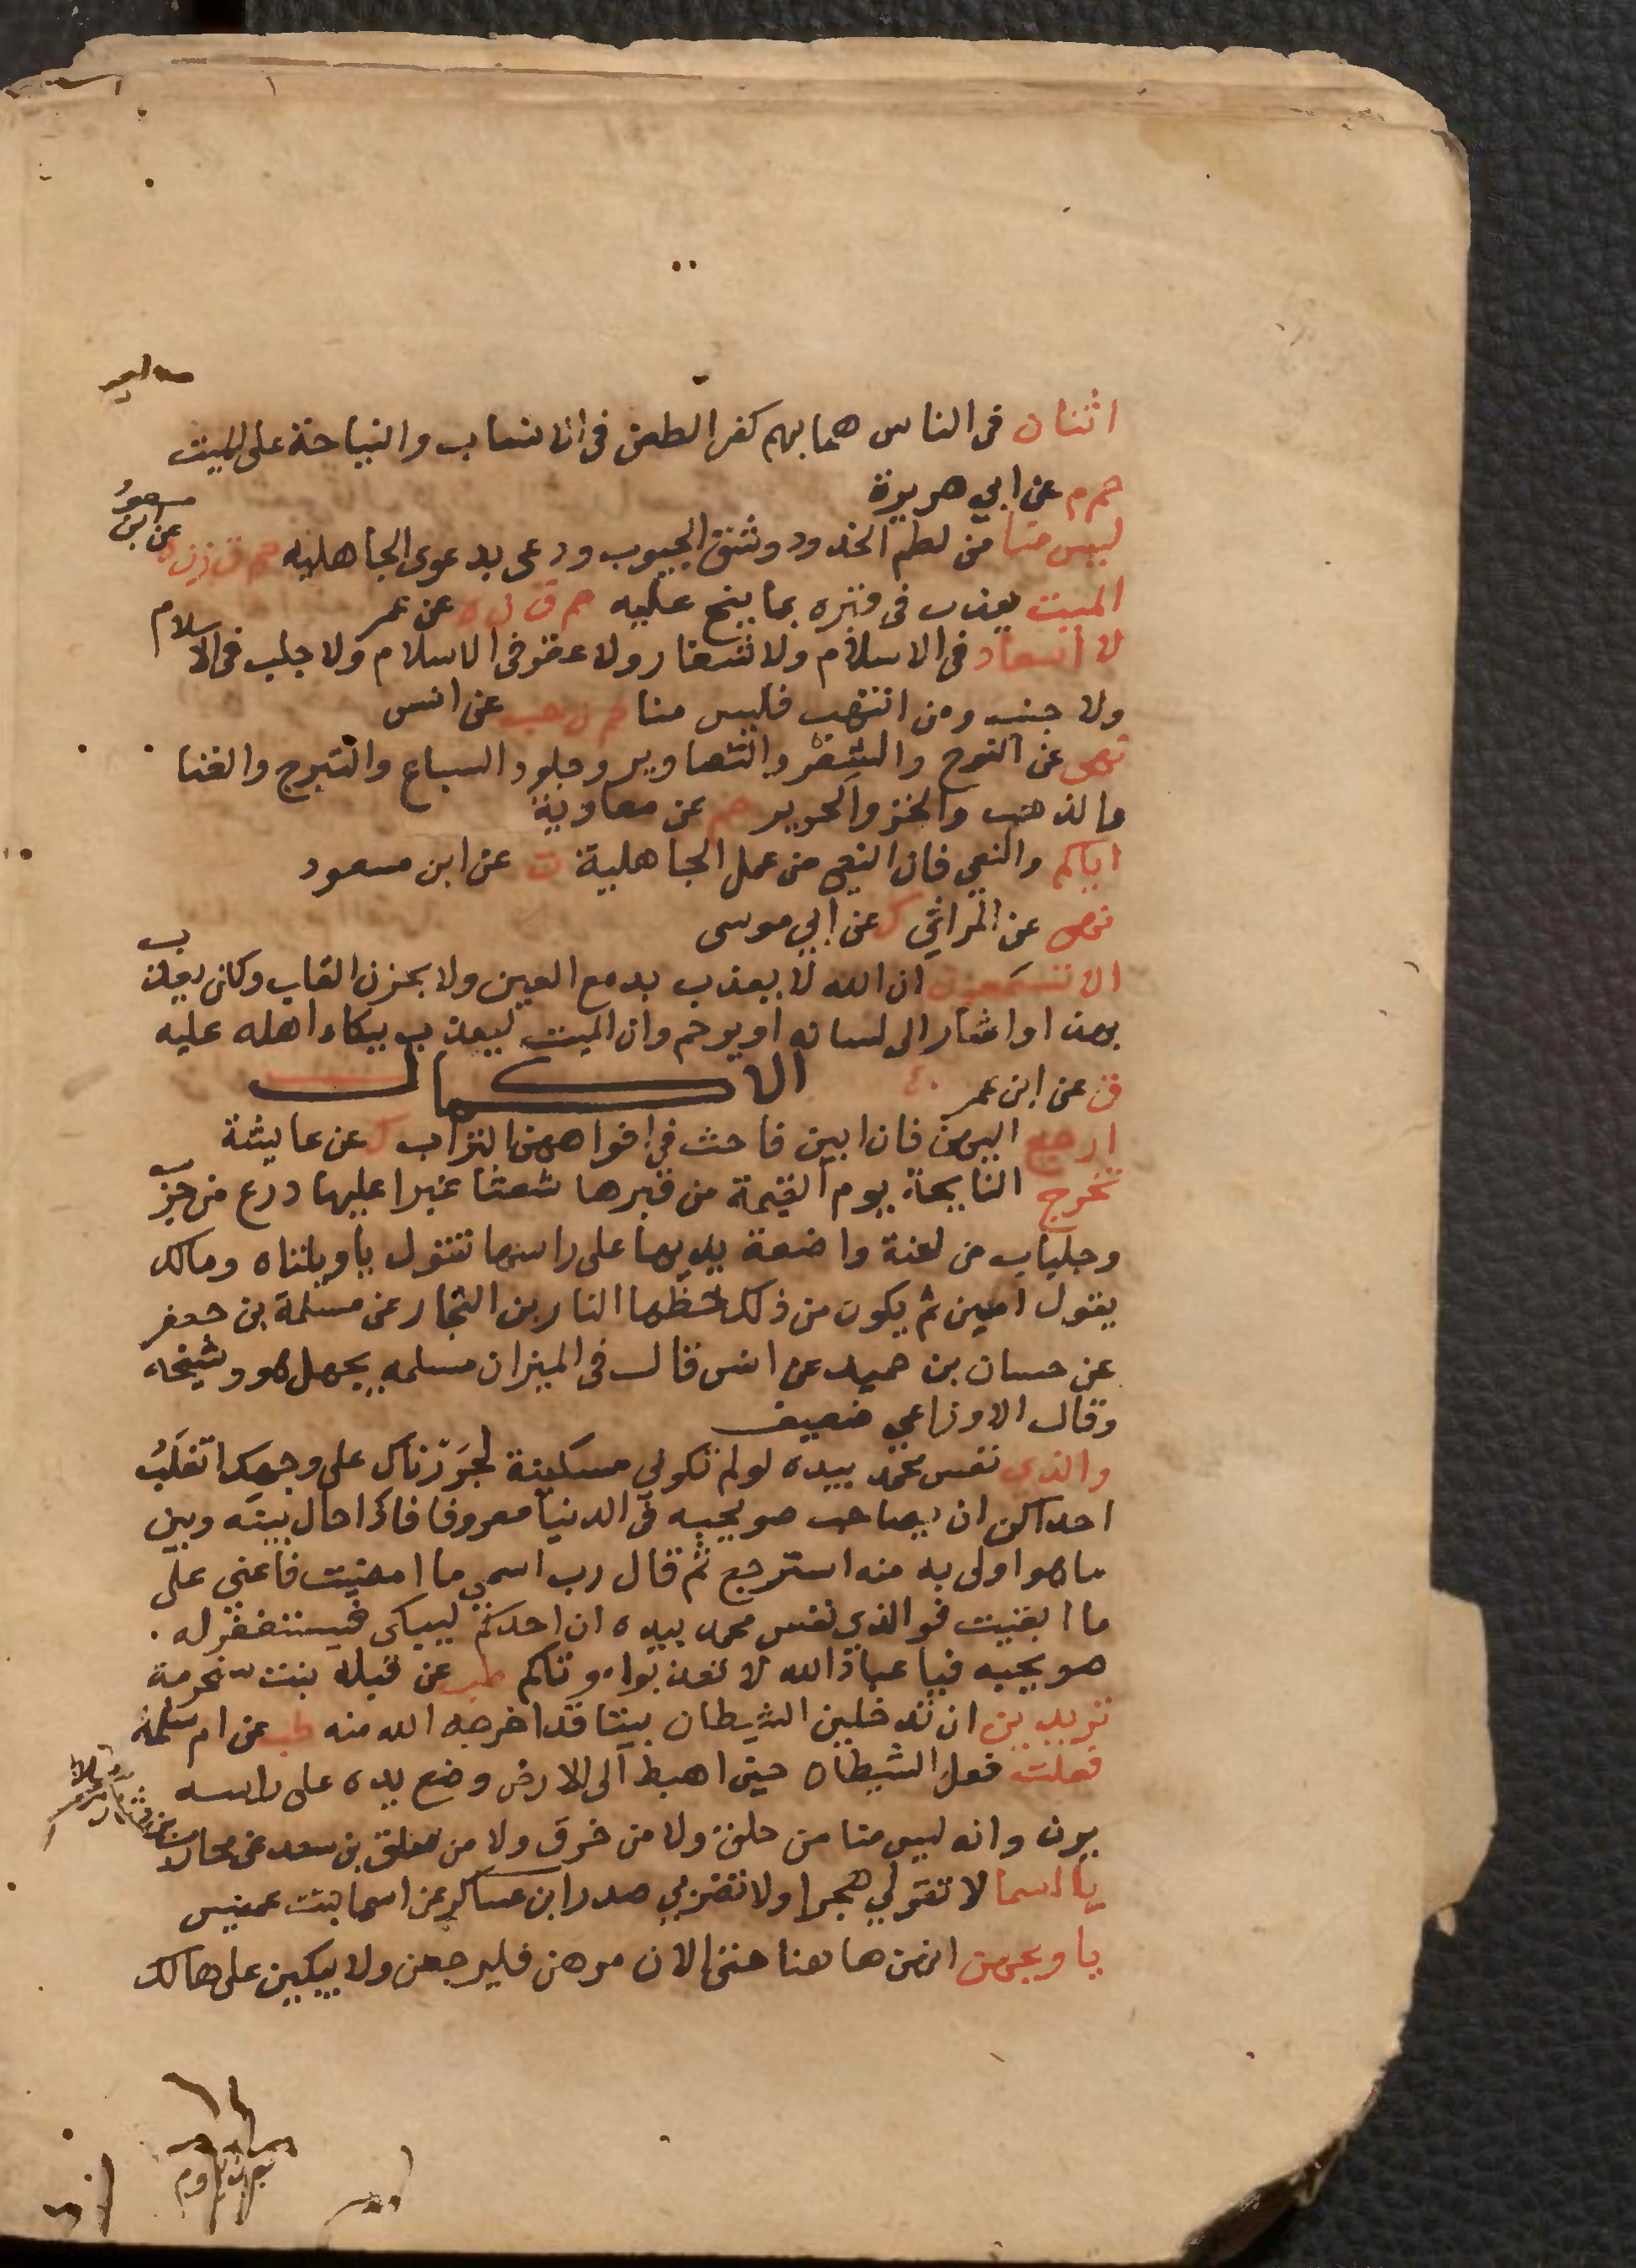 اثنان فى الناس هما بهم كفر الطعن فى الانساب والنياحة على الميت
حم م عن ابي هريرة
ليس منا من لطم الخدود وشق الجيوب ودعى بدعوى الجاهليه حم ق ت ن ه عن ابن مسعود
الميت يعذب فى قبره بما ينح عليه حم ق ن ه عن عمر
لا اسعاد فى الاسلام ولا شغار ولا عقر فى الاسلام ولا جلب فى الاسلام
ولا جنب ومن انتهب فليس منا حم ن حب عن انس
نهى عن النوح والشعر والتصاوير وجلود السباع والتبرج والغنا
والذهب والخز والحرير حم عن معاوية
اياكم والنعي فان النعي من عمل الجاهلية ت عن ابن مسعود
نهى عن المراثي ك عن ابي موسى
الا تسمعون ان الله لا يعذب بدمع العين ولا بحزن القلب ولكن يعذب
بهذا واشار الى لسانه او يرحم وان الميت ليعذب ببكاء اهله عليه
ق عن ابن عمر
الاكمال
ارجع اليهن فان ابين فاحث في افواههن التراب ك عن عايشة
تخرج النايحة يوم القيمة من قبرها شعثا غبرا عليها درع من جرب
وجلباب من لعنة واضعة يديها على راسها تقول ياويلتاه ومالك
يقول امين ثم يكون من ذلك حظها النار بن النجار عن مسلمة بن جعفر
عن حسان بن حميد عن انس قال فى الميزان مسلمه يجهل هو وشيخه
وقال الاوزاعي ضعيف
والذي نفس محمد بيده لو لم تكوني مسكينة لجررناك على وجهك اتغلب
احداكن ان يصاحب صويحبه فى الدنيا معروفا فاذا حال بينه وبين
ما هو اولى به منه استرجع ثم قال رب اسي ما امضيت فاعني على
ما ابقيت فو الذي نفس محمد بيده ان احدكم ليبكى فيستغفر له
صويحبه فيا عباد الله لا تعذبوا موتاكم طب عن قيله بنت مخرمة
تريدين ان تدخلين الشيطان بيتا قد اخرجه الله منه طب عن ام سلمة
فعلت فعل الشيطان حين اهبط الى الارض وضع يده على راسه
يرن وانه ليس منا من حلق ولا من خرق ولا من سلق بن سعد عن محارب
يا اسما لا تقولي هجرا ولا تضربي صدرا بن عساكر عن اسما بنت عميس
يا ويحهن انهن ها هنا حتى الان مرهن فليرجعن ولا يبكين على هالك